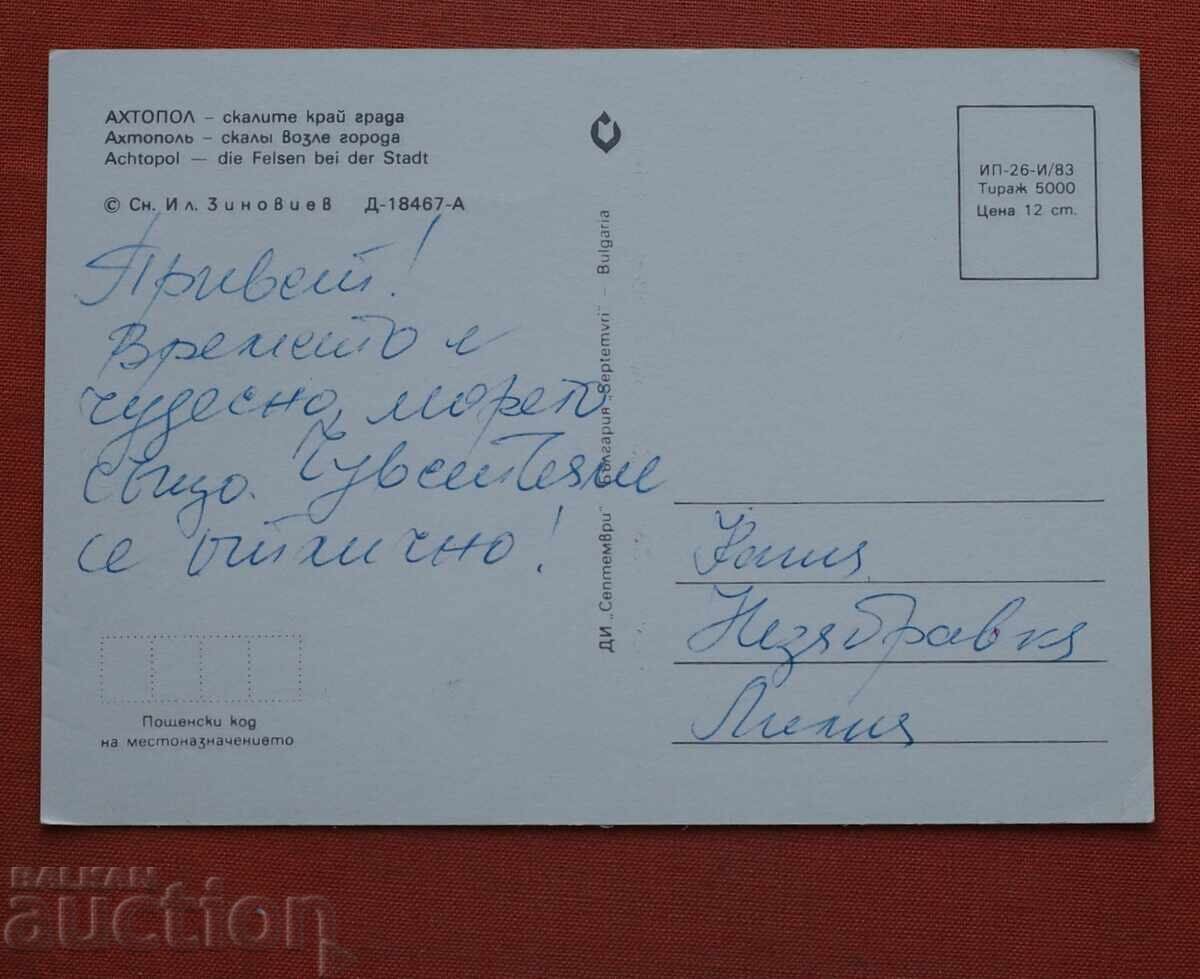 АХТОПОЛ – скалите край града
Ахтополь – скалы возле города
Achtopol — die Felsen bei der Stadt
© Сн. Ил. Зиновиев Д-18467-А
Привет!
Времето е
чудесно, морето
също. Чувстваме
се отлично!
Пощенски код
на местоназначението
ДИ „Септември" България „Septemvri" — Bulgaria
ИП-26-И/83
Тираж 5000
Цена 12 ст.
Незабравка
Лилия
BALKAN
auction